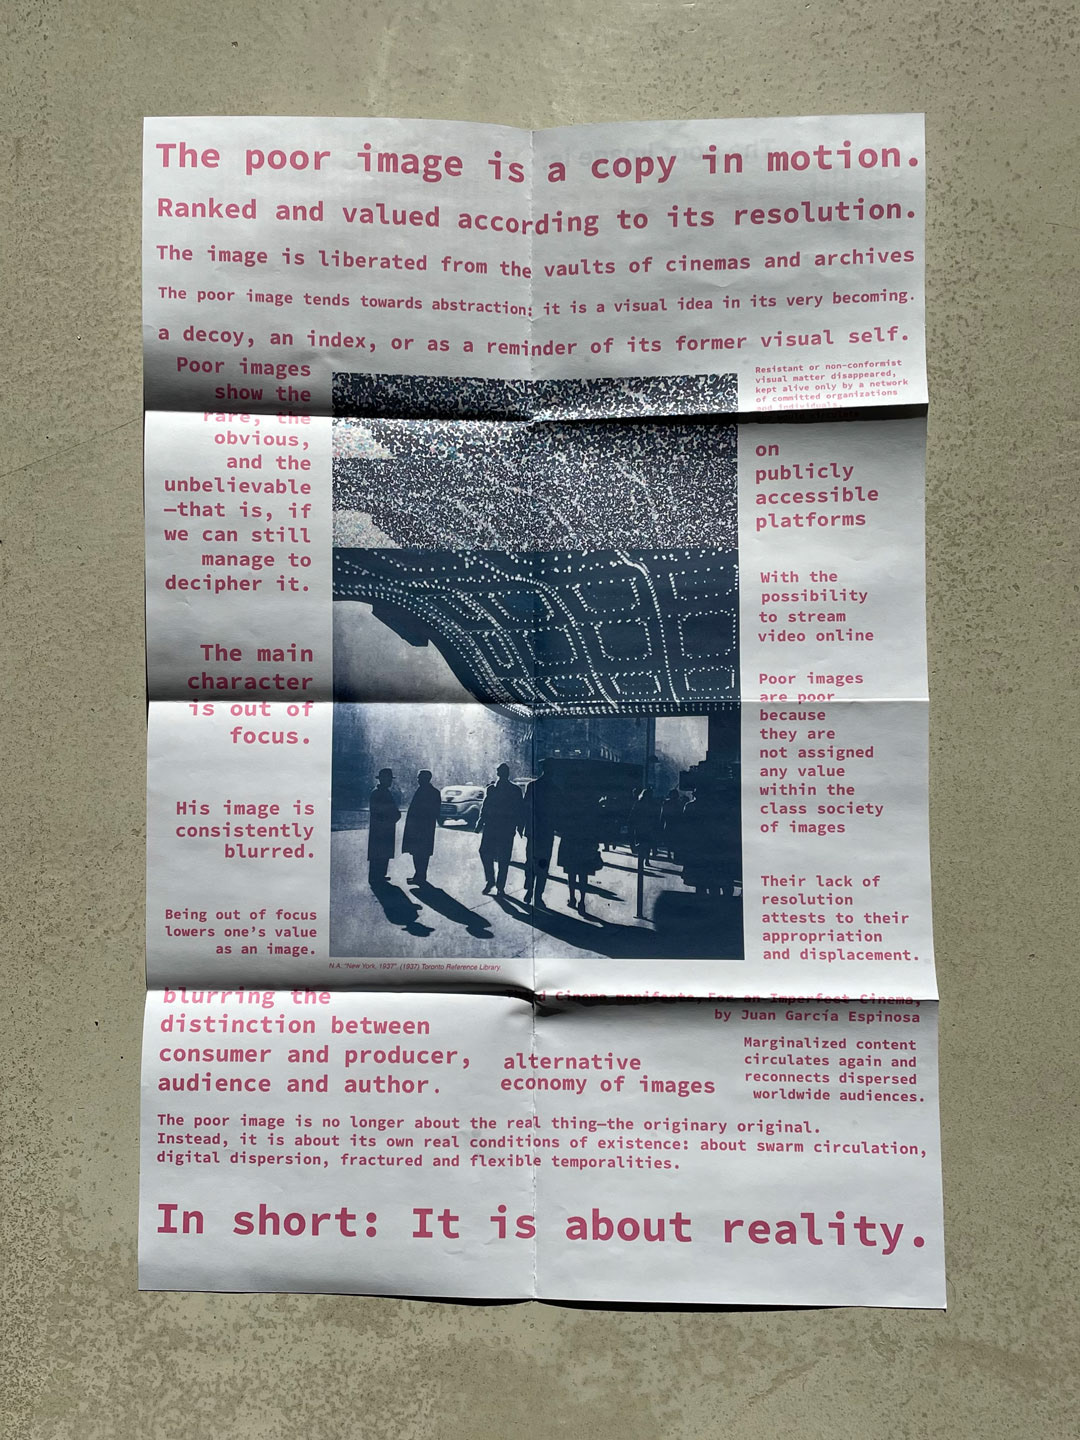 The poor image is a copy in motion.
Ranked and valued according to its resolution.
The image is liberated from the vaults of cinemas and archives
The poor image tends towards abstraction: it is a visual idea in its very becoming.
a decoy, an index, or as a reminder of its former visual self.
Poor images
show the
rare, the
obvious,
and the
unbelievable
—that is, if
we can still
manage to
decipher it.
The main
character
is out of
focus.
His image is
consistently
blurred.
Being out of focus
lowers one's value
as an image.
Resistant or non-conformist
visual matter disappeared,
kept alive only by a network
of committed organizations
and individuals.
on
publicly
accessible
platforms
With the
possibility
to stream
video online
Poor images
are poor
because
they are
not assigned
any value
within the
class society
of images
Their lack of
resolution
attests to their
appropriation
and displacement.
N.A. "New York, 1937". (1937) Toronto Reference Library.
blurring the
distinction between
consumer and producer,
audience and author.
alternative
economy of images
Cinema manifesto, For an Imperfect Cinema,
by Juan García Espinosa
Marginalized content
circulates again and
reconnects dispersed
worldwide audiences.
The poor image is no longer about the real thing—the originary original.
Instead, it is about its own real conditions of existence: about swarm circulation,
digital dispersion, fractured and flexible temporalities.
In short: It is about reality.